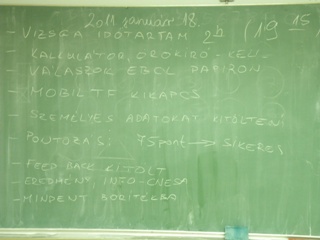 2011 január 18.
- VIZSGA IDŐTARTAM 2h (19 15
- KALKULÁTOR, ÖRÖKÍRÓ - KÉK
- VÁLASZOK EBCOL PAPÍRON
- MOBIL TF KIKAPCS
- SZEMÉLYES ADATOKAT KITÖLTENI
- PONTOZÁS: 75 pont → SIKERES
- FEED BACK KITÖLT
- EREDMÉNY INFO-
- MINDENT BORÍTÉKBA